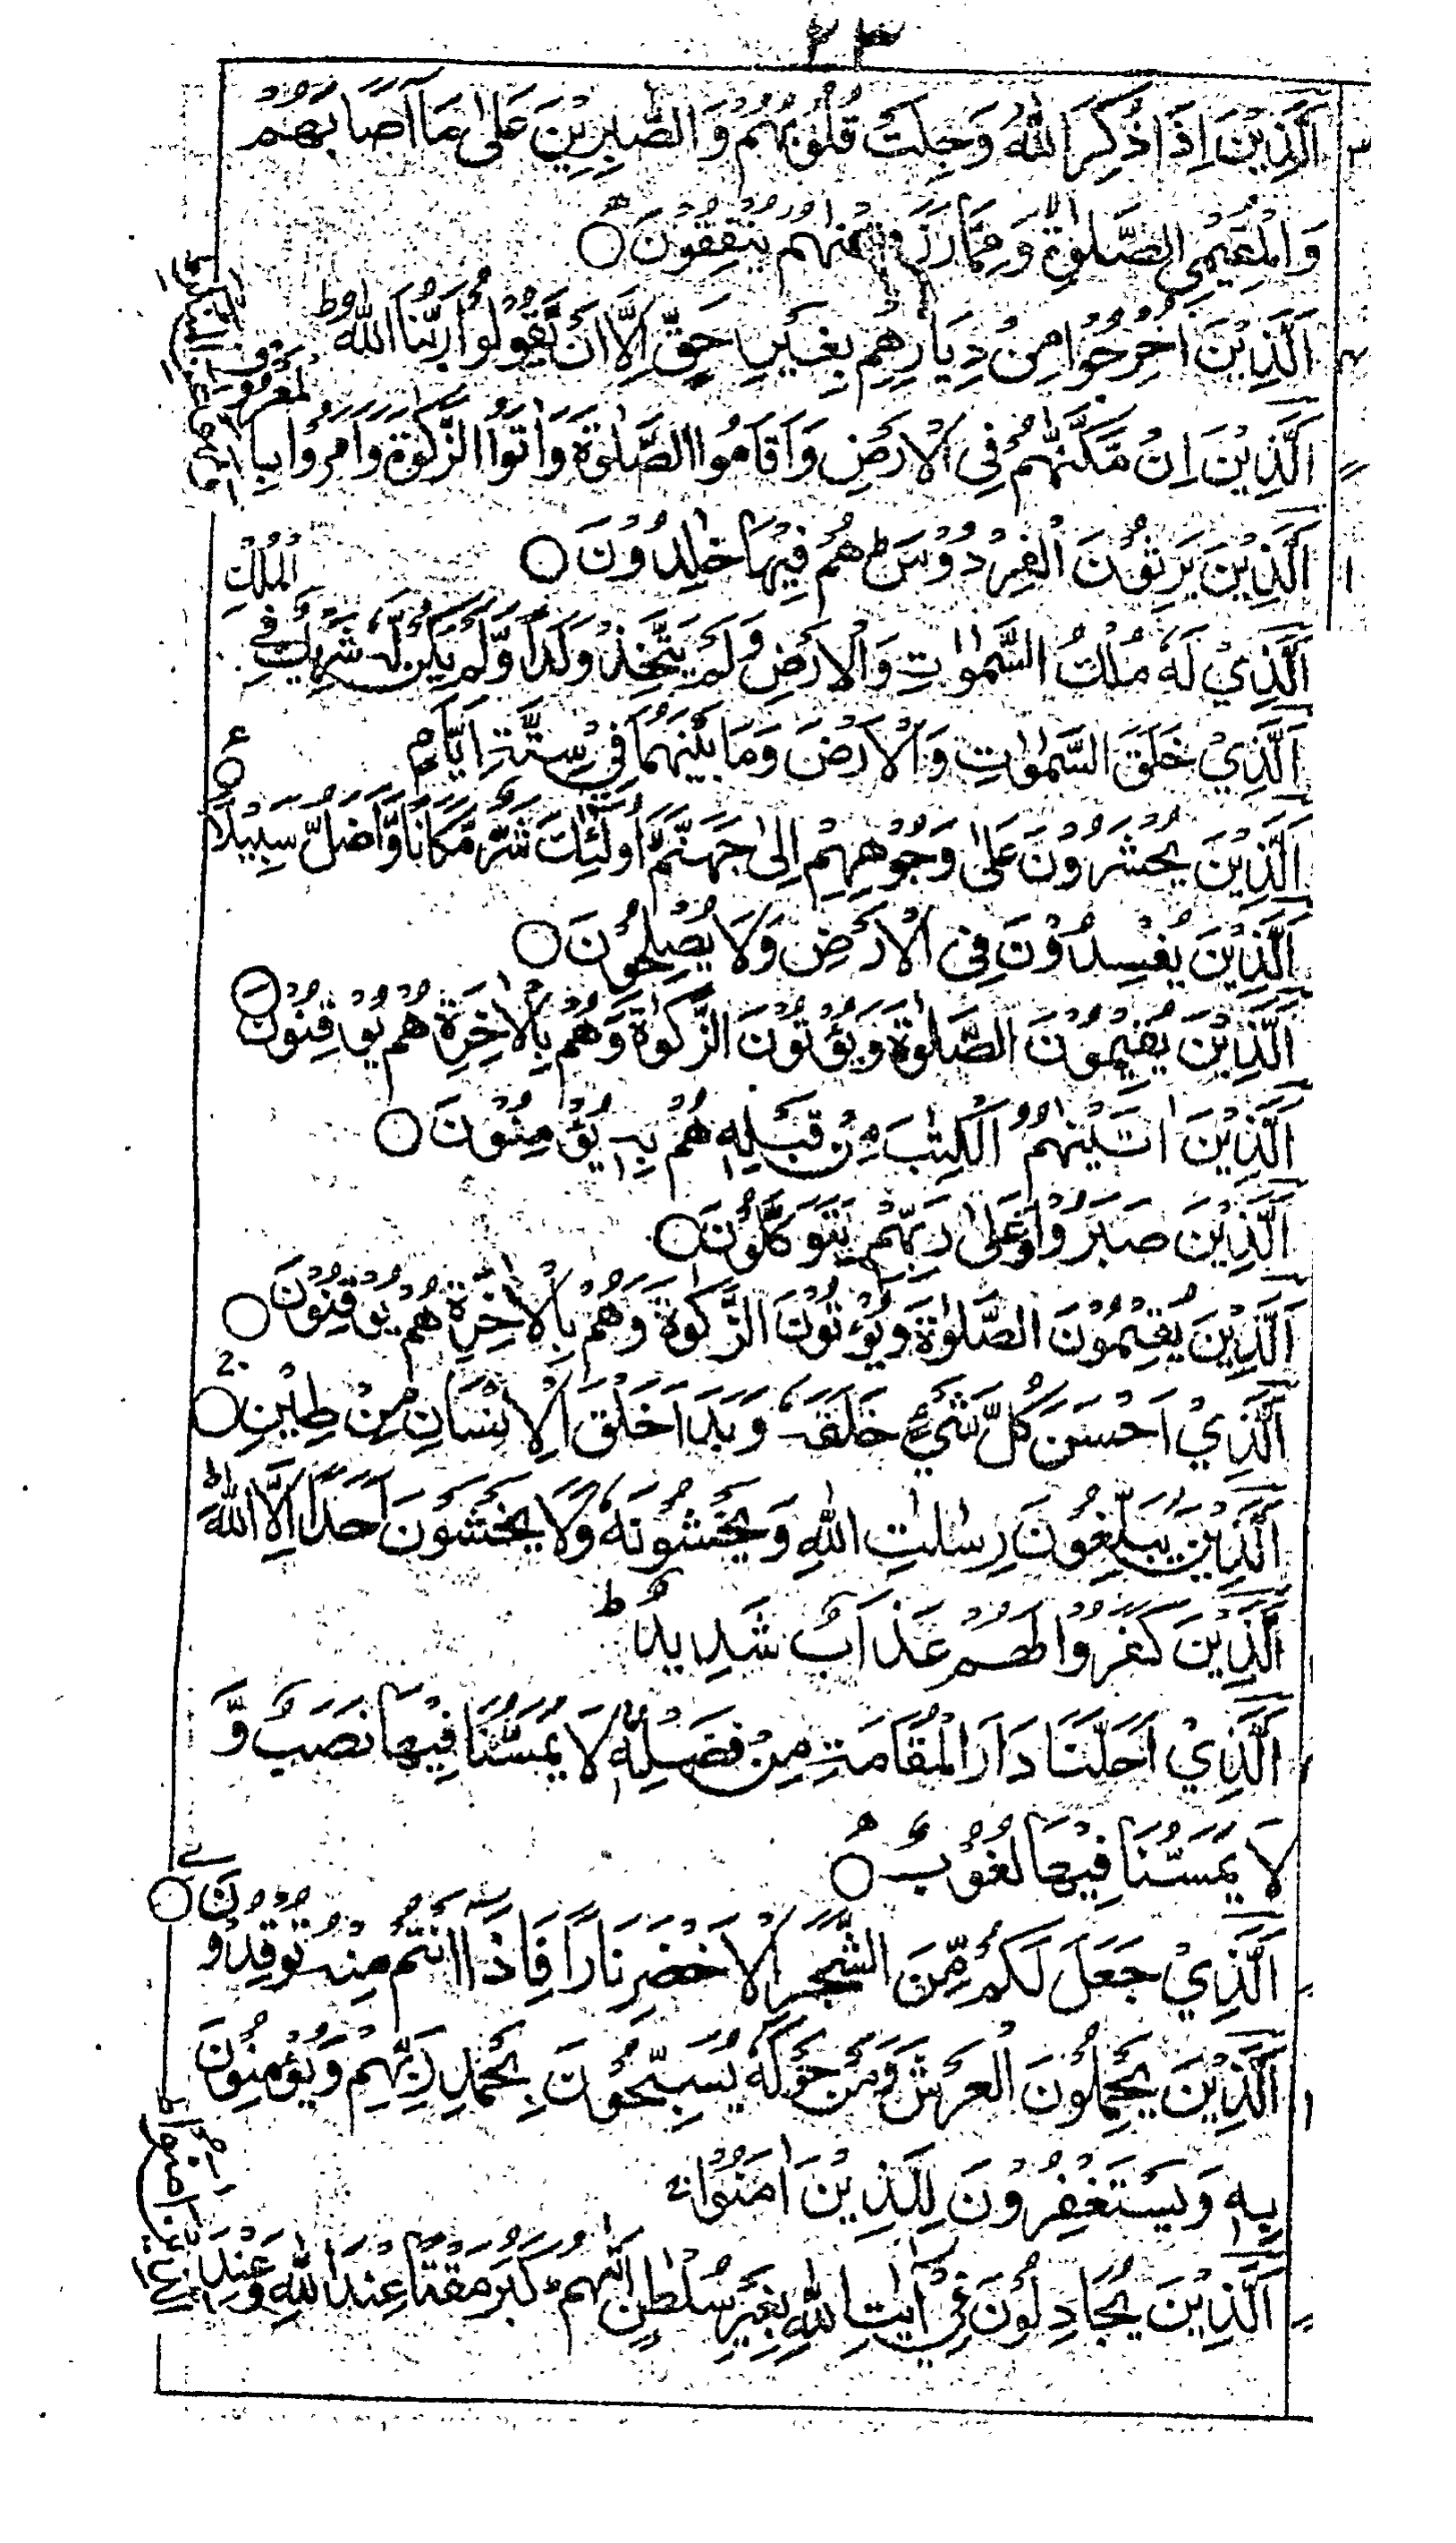 ٢٣
الَّذِيْنَ اِذَا ذُكِرَ اللّٰهُ وَجِلَتْ قُلُوْبُهُمْ وَالصّٰبِرِيْنَ عَلٰى مَآ اَصَابَهُمْ
وَالْمُقِيْمِي الصَّلٰوةِ وَمِمَّا رَزَقْنٰهُمْ يُنْفِقُوْنَ ○
الَّذِيْنَ اُخْرِجُوْا مِنْ دِيَارِهِمْ بِغَيْرِ حَقٍّ اِلَّآ اَنْ يَّقُوْلُوْا رَبُّنَا اللّٰهُ ط
الَّذِيْنَ اِنْ مَّكَّنّٰهُمْ فِى الْاَرْضِ وَاَقَامُوا الصَّلٰوةَ وَاٰتَوُا الزَّكٰوةَ وَاَمَرُوْا بِا لْمَعْرُوْفِ
الَّذِيْنَ يَرِثُوْنَ الْفِرْدَوْسَ ط هُمْ فِيْهَا خٰلِدُوْنَ ○
الَّذِيْ لَهٗ مُلْكُ السَّمٰوٰتِ وَالْاَرْضِ وَلَمْ يَتَّخِذْ وَلَدًا وَّلَمْ يَكُنْ لَّهٗ شَرِيْكٌ فِي الْمُلْكِ
الَّذِيْ خَلَقَ السَّمٰوٰتِ وَالْاَرْضَ وَمَا بَيْنَهُمَا فِيْ سِتَّةِ اَيَّامٍ
الَّذِيْنَ يُحْشَرُوْنَ عَلٰى وُجُوْهِهِمْ اِلٰى جَهَنَّمَ اُولٰٓئِكَ شَرٌّ مَّكَانًا وَّاَضَلُّ سَبِيْلًا ○
الَّذِيْنَ يُفْسِدُوْنَ فِى الْاَرْضِ وَلَا يُصْلِحُوْنَ ○
الَّذِيْنَ يُقِيْمُوْنَ الصَّلٰوةَ وَيُؤْتُوْنَ الزَّكٰوةَ وَهُمْ بِالْاٰخِرَةِ هُمْ يُوْقِنُوْنَ ○
الَّذِيْنَ اٰتَيْنٰهُمُ الْكِتٰبَ مِنْ قَبْلِهٖ هُمْ بِهٖ يُؤْمِنُوْنَ ○
الَّذِيْنَ صَبَرُوْا وَعَلٰى رَبِّهِمْ يَتَوَكَّلُوْنَ ○
الَّذِيْنَ يُقِيْمُوْنَ الصَّلٰوةَ وَيُؤْتُوْنَ الزَّكٰوةَ وَهُمْ بِالْاٰخِرَةِ هُمْ يُوْقِنُوْنَ ○
الَّذِيْ اَحْسَنَ كُلَّ شَيْءٍ خَلَقَهٗ وَبَدَاَ خَلْقَ الْاِنْسَانِ مِنْ طِيْنٍ ○
الَّذِيْنَ يُبَلِّغُوْنَ رِسٰلٰتِ اللّٰهِ وَيَخْشَوْنَهٗ وَلَا يَخْشَوْنَ اَحَدًا اِلَّا اللّٰهَ ط
الَّذِيْنَ كَفَرُوْا لَهُمْ عَذَابٌ شَدِيْدٌ ط
الَّذِيْٓ اَحَلَّنَا دَارَ الْمُقَامَةِ مِنْ فَضْلِهٖ لَا يَمَسُّنَا فِيْهَا نَصَبٌ وَّ
لَا يَمَسُّنَا فِيْهَا لُغُوْبٌ ○
الَّذِيْ جَعَلَ لَكُمْ مِّنَ الشَّجَرِ الْاَخْضَرِ نَارًا فَاِذَآ اَنْتُمْ مِنْهُ تُوْقِدُوْنَ ○
الَّذِيْنَ يَحْمِلُوْنَ الْعَرْشَ وَمَنْ حَوْلَهٗ يُسَبِّحُوْنَ بِحَمْدِ رَبِّهِمْ وَيُؤْمِنُوْنَ
بِهٖ وَيَسْتَغْفِرُوْنَ لِلَّذِيْنَ اٰمَنُوْا
الَّذِيْنَ يُجَادِلُوْنَ فِيْٓ اٰيٰتِ اللّٰهِ بِغَيْرِ سُلْطٰنٍ اَتٰهُمْ كَبُرَ مَقْتًا عِنْدَ اللّٰهِ وَعِنْدَ